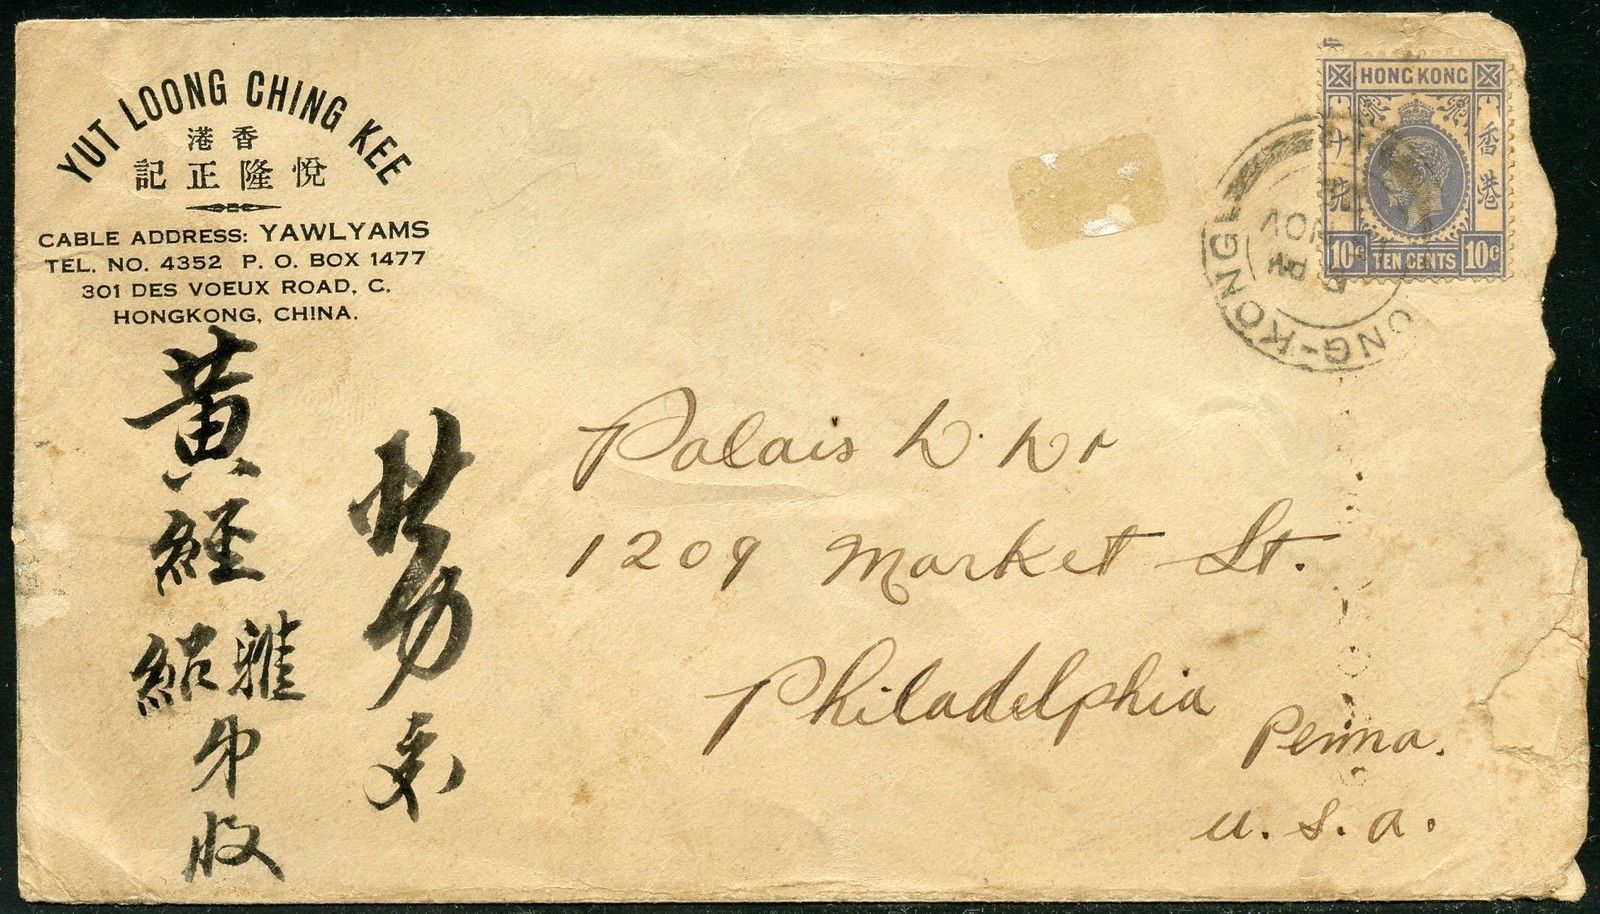 YUT LOONG CHING KEE
港香
記正隆悅
CABLE ADDRESS: YAWLYAMS
TEL. NO. 4352 P. O. BOX 1477
301 DES VOEUX ROAD, C.
HONGKONG, CHINA.
HONG KONG
香港
10c TEN CENTS 10c
NOV
Palais
1209 Market St.
Philadelphia
Penna.
U.S.A.
黃經
紹雅
收